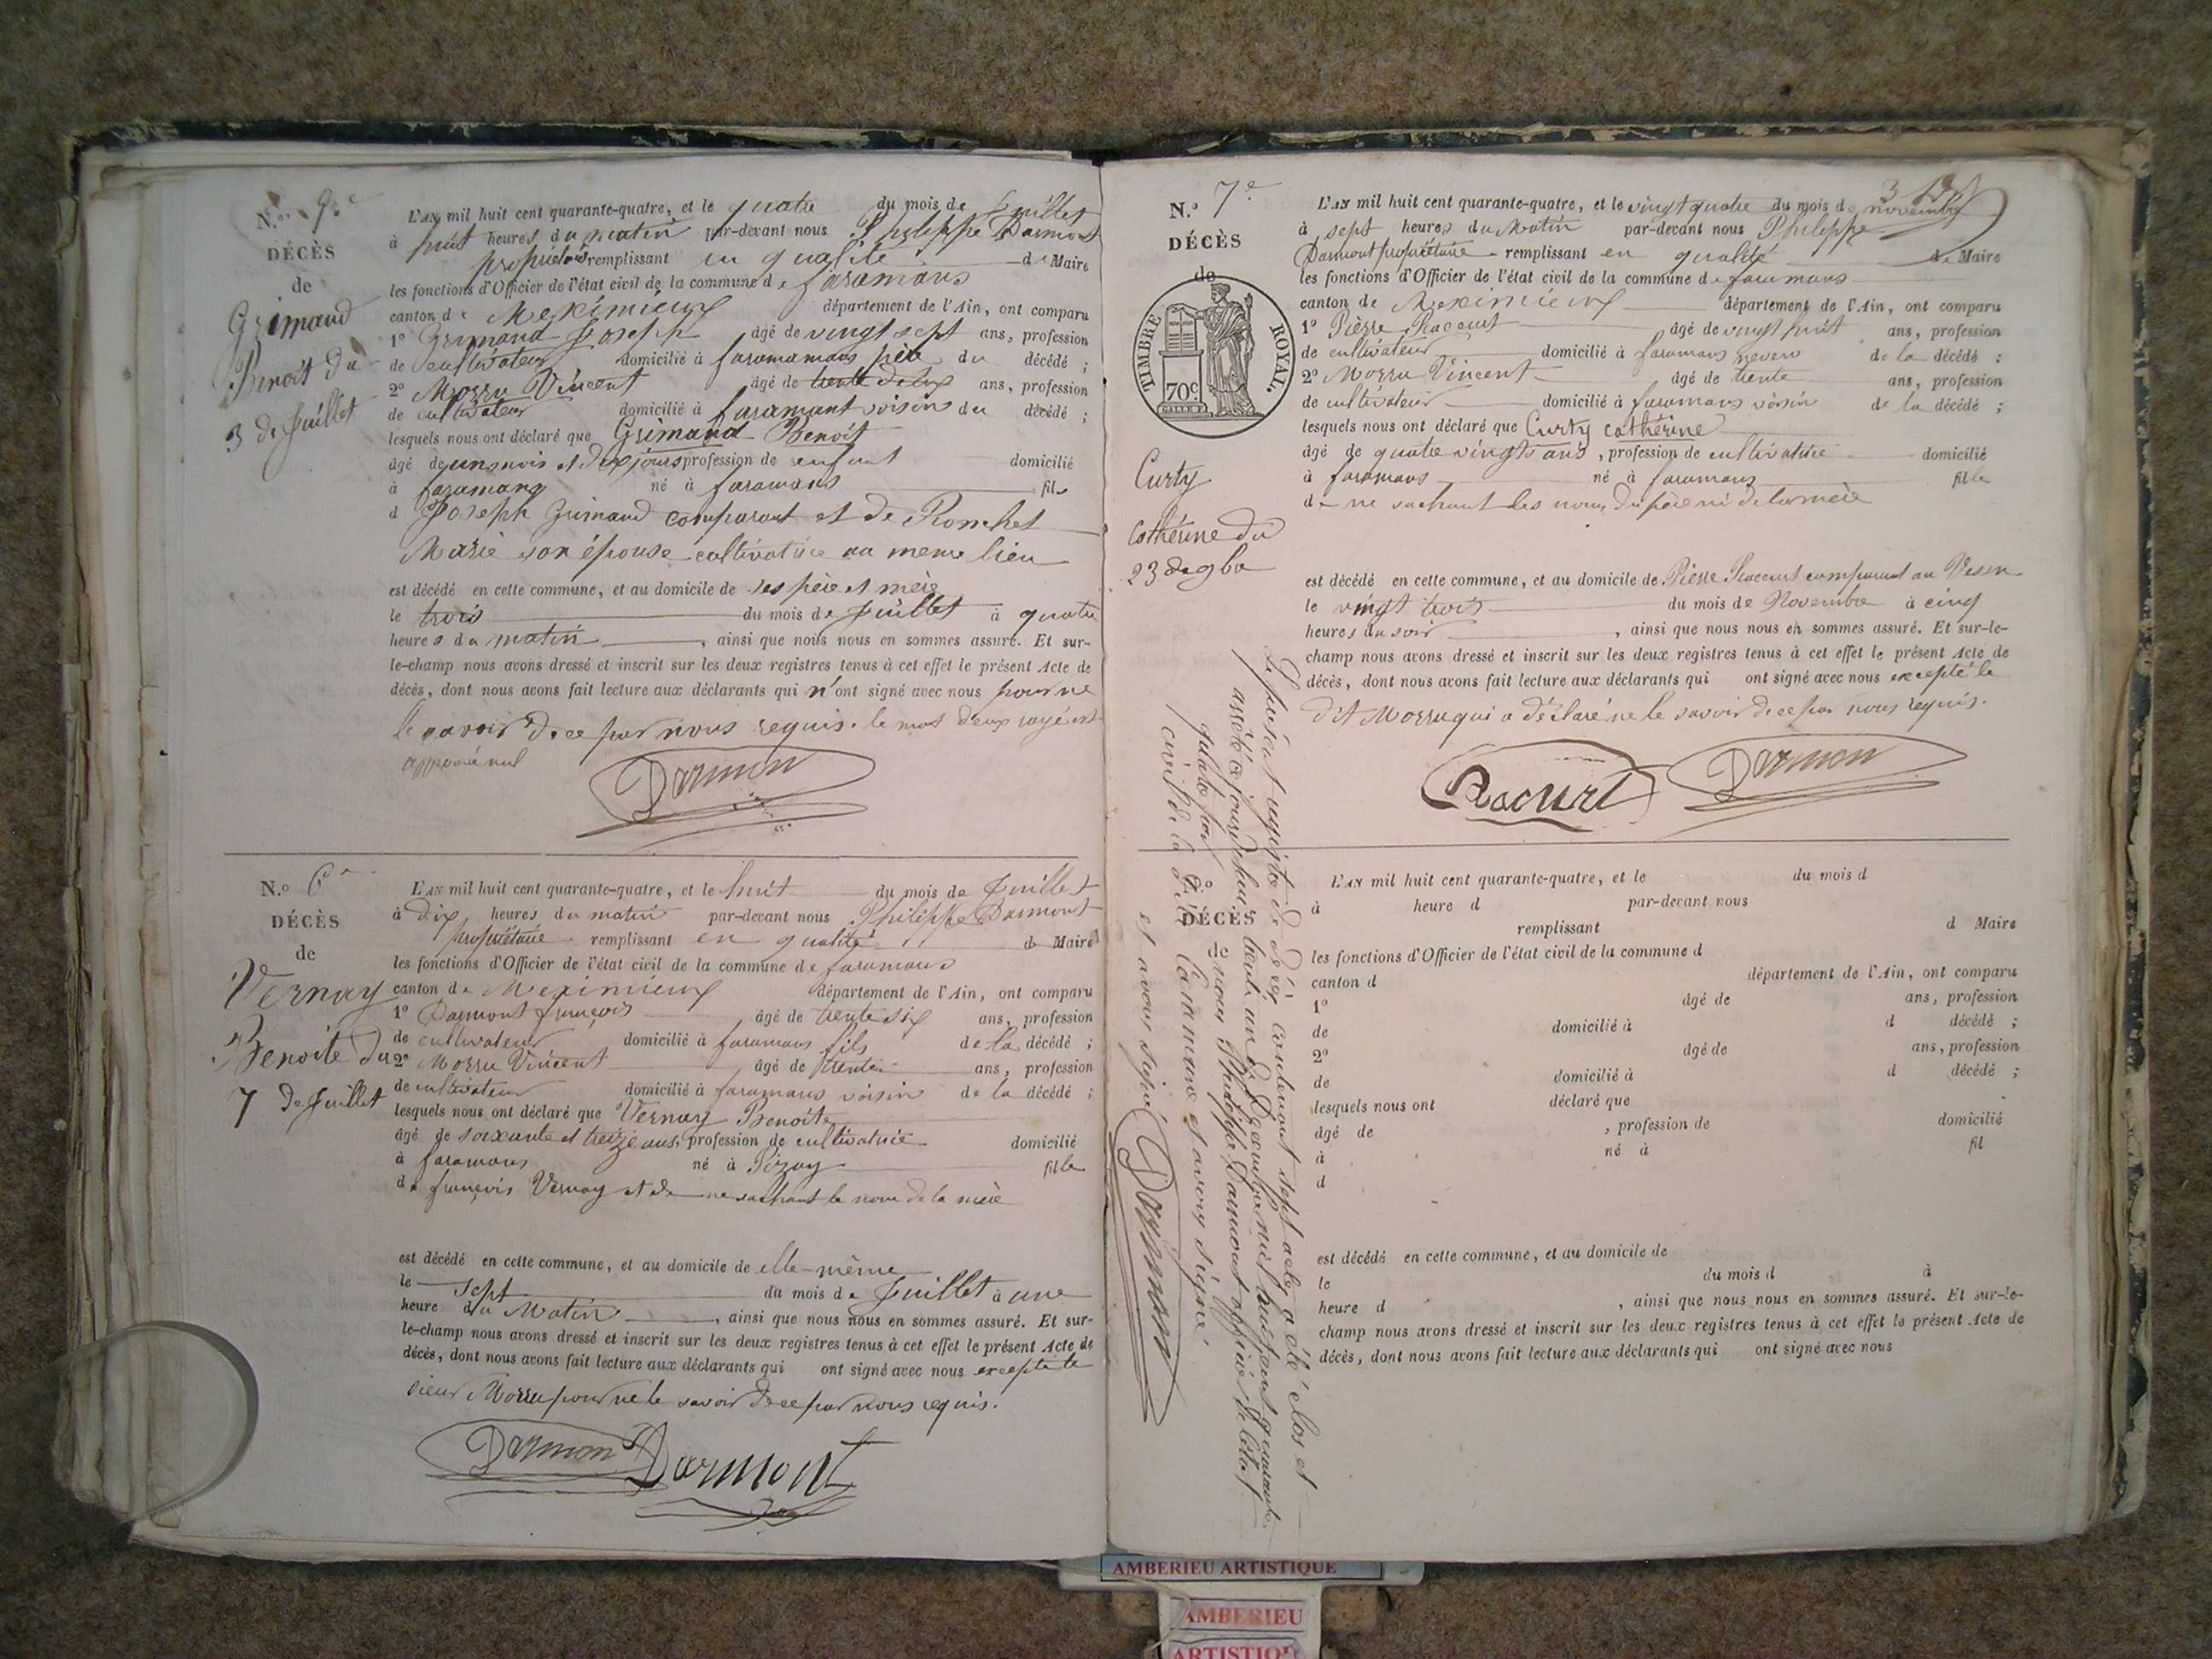 DÉCÈS
de
Grimaud
Benoit du
3 de Juillet
L'AN mil huit cent quarante-quatre, et le quatre du mois de Juillet
à huit heures du matin par-devant nous Philippe Darmont
propriétaire remplissant en qualité de Maire
les fonctions d'Officier de l'état civil de la commune de faramans
canton de Meximieux département de l'Ain, ont comparu
1º Grimaud Joseph âgé de vingt sept ans, profession
de cultivateur domicilié à faramamans père du décédé ;
2º Morru Vincent âgé de trente deux ans, profession
de cultivateur domicilié à faramant voisin du décédé ;
lesquels nous ont déclaré que Grimaud Benoit
âgé de un mois et dix jours profession de enfant domicilié
à faramans né à faramans fils
d Joseph Grimaud comparant et de Ronchet
Marie son épouse cultivatrice au meme lieu
est décédé en cette commune, et au domicile de ses père et mère
le trois du mois de Juillet à quatre
heures du matin, ainsi que nous nous en sommes assuré. Et sur-
le-champ nous avons dressé et inscrit sur les deux registres tenus à cet effet le présent Acte de
décès, dont nous avons fait lecture aux déclarants qui n'ont signé avec nous pour ne
le savoir de ce par nous requis. le mot deux rayé est
approuvé nul
Darmon
N.º 6e
DÉCÈS
de
Vernay
Benoite du
7 de Juillet
L'AN mil huit cent quarante-quatre, et le huit du mois de Juillet
à dix heures du matin par-devant nous Philippe Darmont
propriétaire remplissant en qualité de Maire
les fonctions d'Officier de l'état civil de la commune de faramans
canton de Meximieux département de l'Ain, ont comparu
1º Darmont françois âgé de trente six ans, profession
de cultivateur domicilié à faramans fils de la décédé ;
2º Morru Vincent âgé de trente ans, profession
de cultivateur domicilié à faramans voisin de la décédé ;
lesquels nous ont déclaré que Vernay Benoite
âgé de soixante et treize ans, profession de cultivatrice domicilié
à faramans né à Pizay fille
de françois Vernay et de ne sachant le nom de la mère
est décédé en cette commune, et au domicile de elle-même
le sept du mois de Juillet à une
heure du Matin, ainsi que nous nous en sommes assuré. Et sur-
le-champ nous avons dressé et inscrit sur les deux registres tenus à cet effet le présent Acte de
décès, dont nous avons fait lecture aux déclarants qui ont signé avec nous excepté le
sieur Morru pour ne le savoir de ce par nous requis.
Darmon Darmont
N.º 7e
DÉCÈS
de
TIMBRE ROYAL.
70c
Curty
Cathérine du
23 de 9bre
L'AN mil huit cent quarante-quatre, et le vingt quatre du mois de novembre
à sept heures du Matin par-devant nous Philippe
Darmont propriétaire remplissant en qualité de Maire
les fonctions d'Officier de l'état civil de la commune de faramans
canton de Meximieux département de l'Ain, ont comparu
1º Pièrre Racourt âgé de vingt huit ans, profession
de cultivateur domicilié à faramans neveu de la décédé ;
2º Morru Vincent âgé de trente ans, profession
de cultivateur domicilié à faramans voisin de la décédé ;
lesquels nous ont déclaré que Curty cathérine
âgé de quatre vingts ans, profession de cultivatrice domicilié
à faramans né à faramans fille
de ne sachant les noms du père ni de la mère
est décédé en cette commune, et au domicile de Pièrre Racourt comparant au
le vingt trois du mois de Novembre à cinq
heures du soir, ainsi que nous nous en sommes assuré. Et sur-le-
champ nous avons dressé et inscrit sur les deux registres tenus à cet effet le présent Acte de
décès, dont nous avons fait lecture aux déclarants qui ont signé avec nous excepté le
dit Morru qui a déclaré ne le savoir de ce par nous requis.
Racourt Darmon
Le présent registre de décès contenant sept actes a été clos et
arrêté ce jourd'hui trente un décembre mil huit cent quarante
quatre par nous Philippe Darmont officier de l'état
civil de la dite Commune et avons signé
et avons signé Darmon
DÉCÈS
de
L'AN mil huit cent quarante-quatre, et le du mois d
à heure d par-devant nous
remplissant d Maire
les fonctions d'Officier de l'état civil de la commune d
canton d département de l'Ain, ont comparu
1º âgé de ans, profession
de domicilié à d décédé ;
2º âgé de ans, profession
de domicilié à d décédé ;
lesquels nous ont déclaré que
âgé de , profession de domicilié
à né à fil
d
est décédé en cette commune, et au domicile de
le du mois d à
heure d , ainsi que nous nous en sommes assuré. Et sur-le-
champ nous avons dressé et inscrit sur les deux registres tenus à cet effet le présent Acte de
décès, dont nous avons fait lecture aux déclarants qui ont signé avec nous
AMBERIEU ARTISTIQUE
AMBERIEU